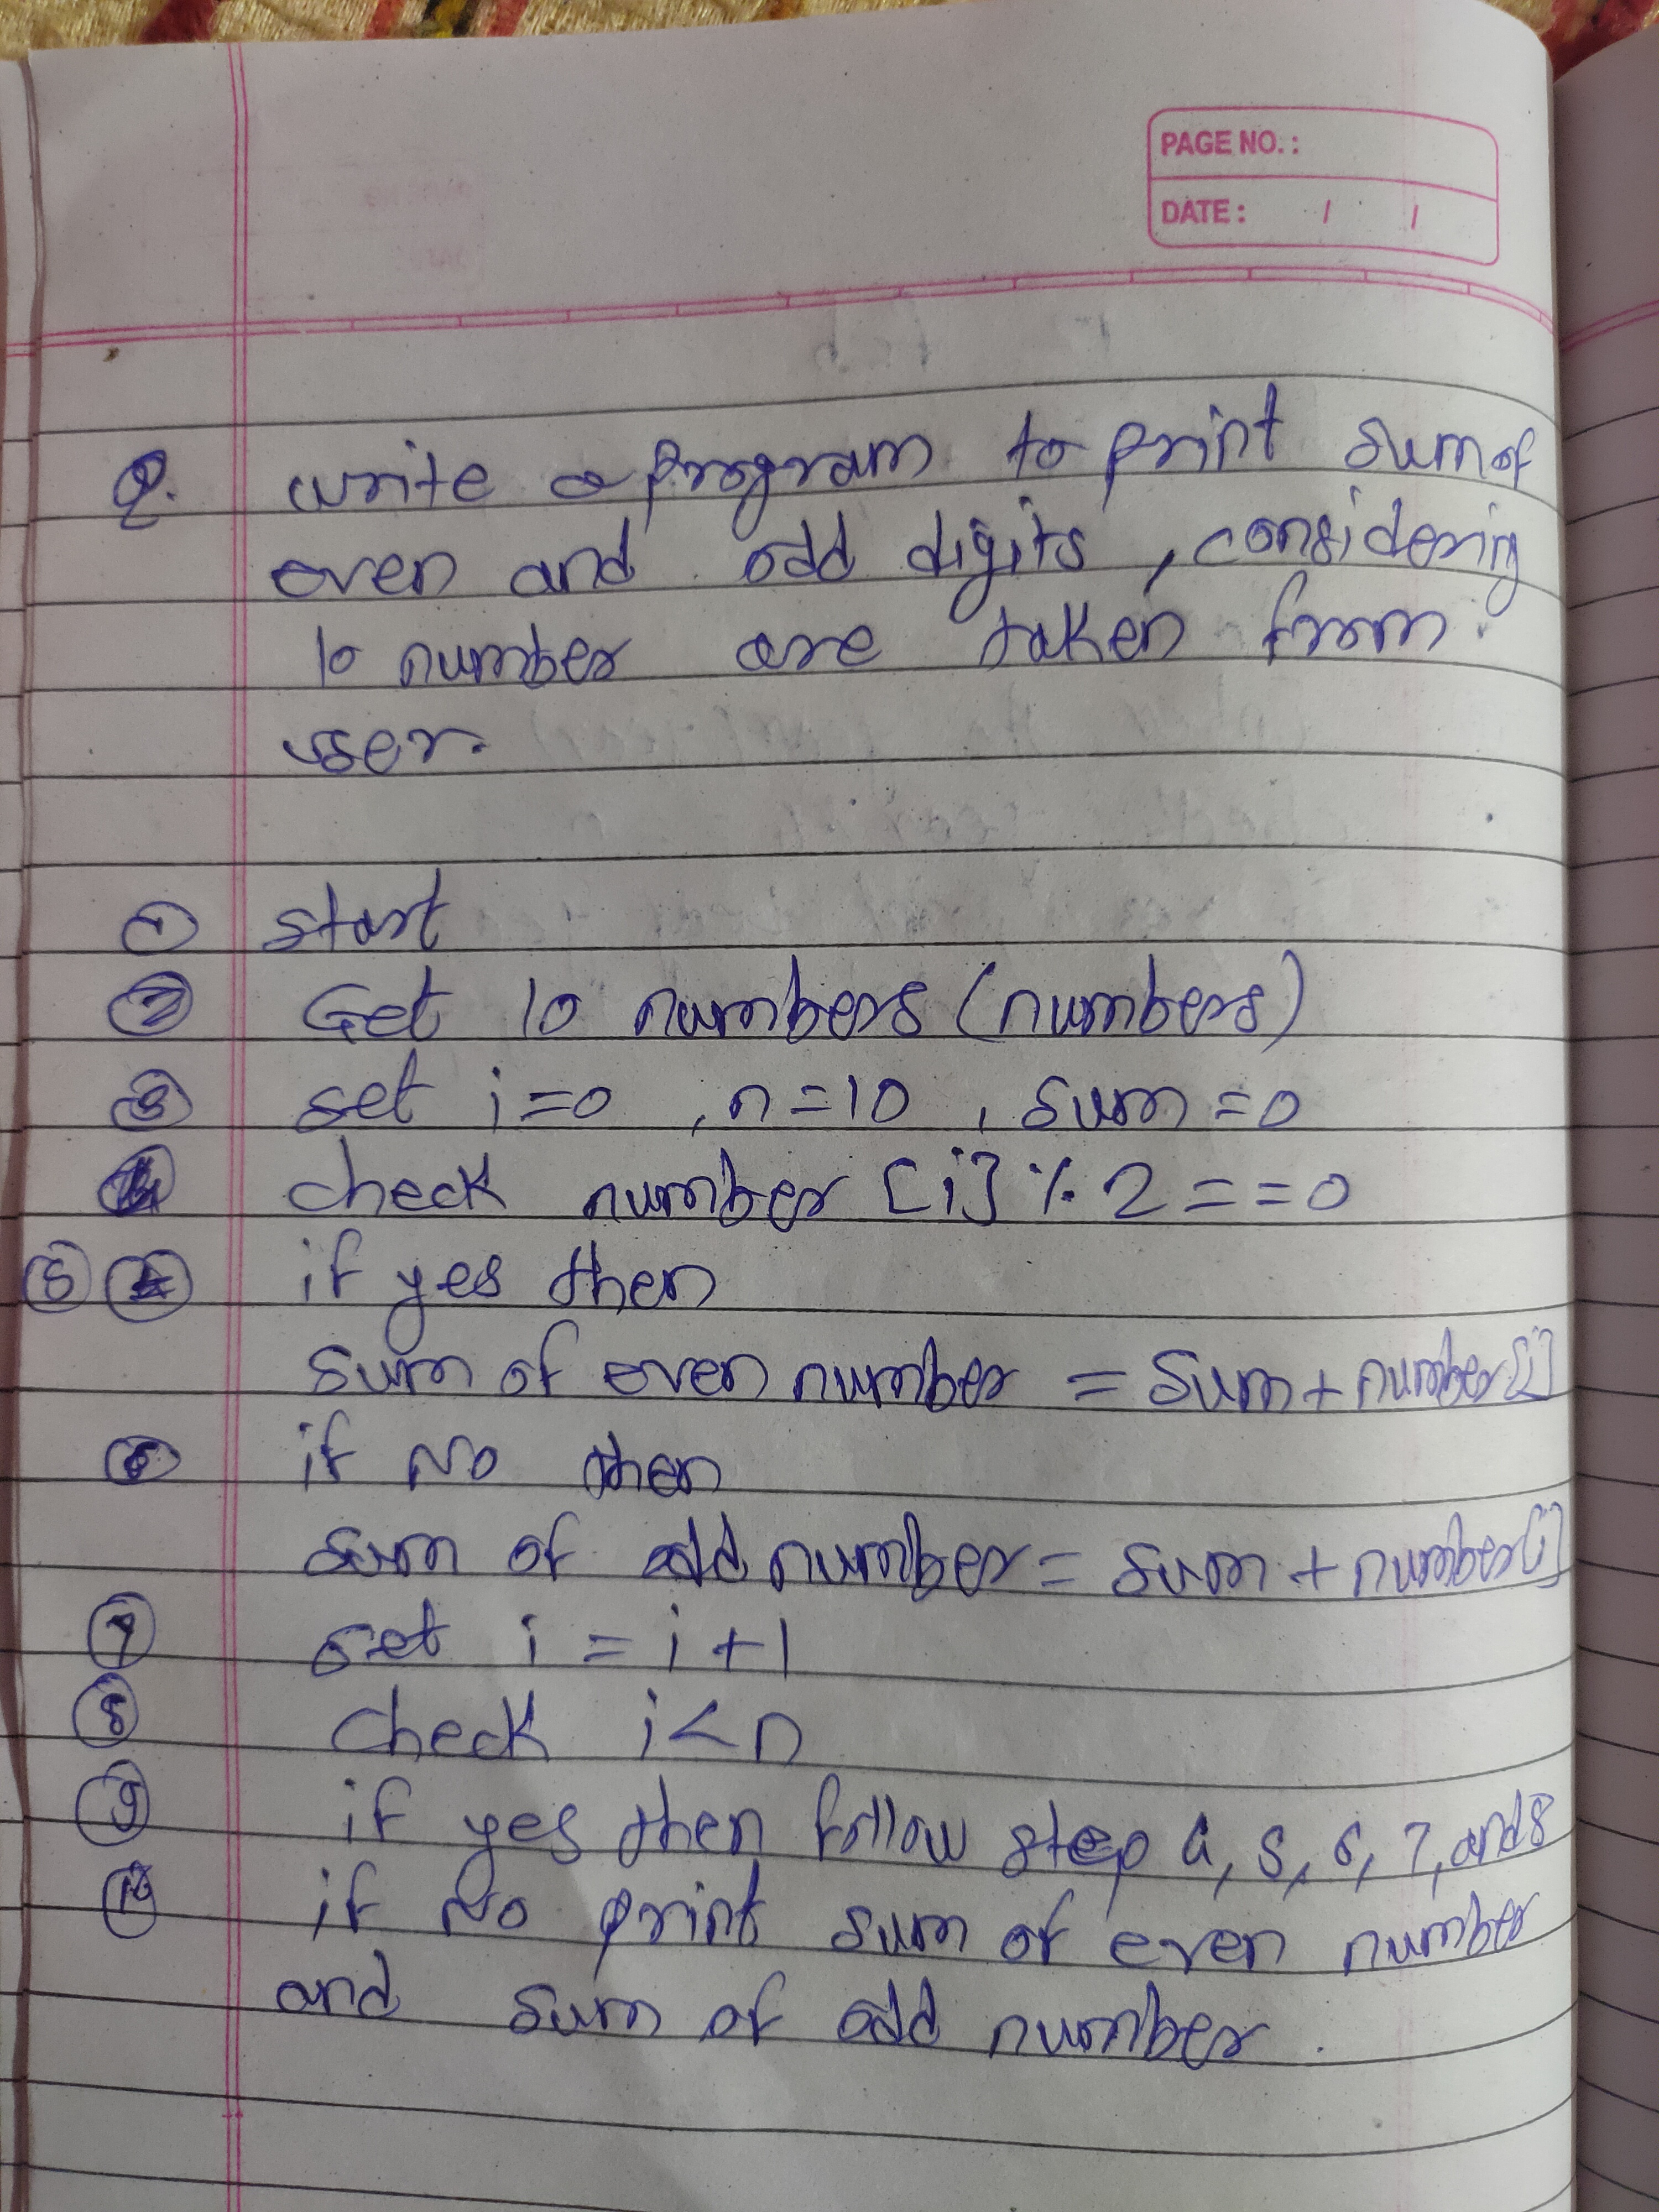 PAGE NO.:
DATE: / /
Q. write a program to print sum of
even and odd digits, considering
10 number are taken from
user.
① start
② Get 10 numbers (numbers)
③ set i=0 , n=10 , sum=0
④ check number [i] % 2 = = 0
⑤ if yes then
sum of even number = sum + number[i]
⑥ if No then
sum of odd number = sum + number[i]
⑦ set i = i + 1
⑧ check i < n
⑨ if yes then follow step 4, 5, 6, 7, and 8
⑩ if No print sum of even number
and sum of odd number.